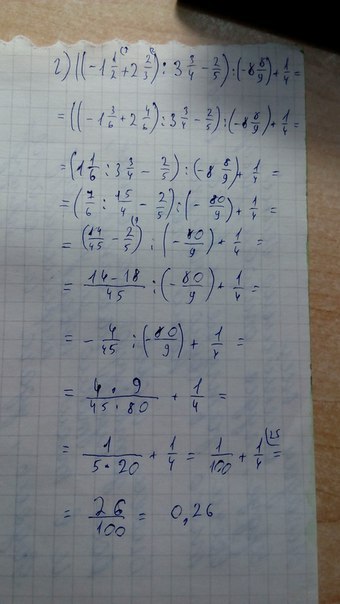 2) ((-1 1/2 + 2 2/3) : 3 3/4 - 2/5) : (-8 8/9) + 1/4 =
= ((-1 3/6 + 2 4/6) : 3 3/4 - 2/5) : (-8 8/9) + 1/4 =
= (1 1/6 : 3 3/4 - 2/5) : (-8 8/9) + 1/4 =
= (7/6 : 15/4 - 2/5) : (-80/9) + 1/4 =
= (14/45 - 2/5) : (-80/9) + 1/4 =
= (14-18)/45 : (-80/9) + 1/4 =
= -4/45 : (-80/9) + 1/4 =
= (4 · 9)/(45 · 80) + 1/4 =
= 1/(5·20) + 1/4 = 1/100 + 1/4 (25 =
= 26/100 = 0,26